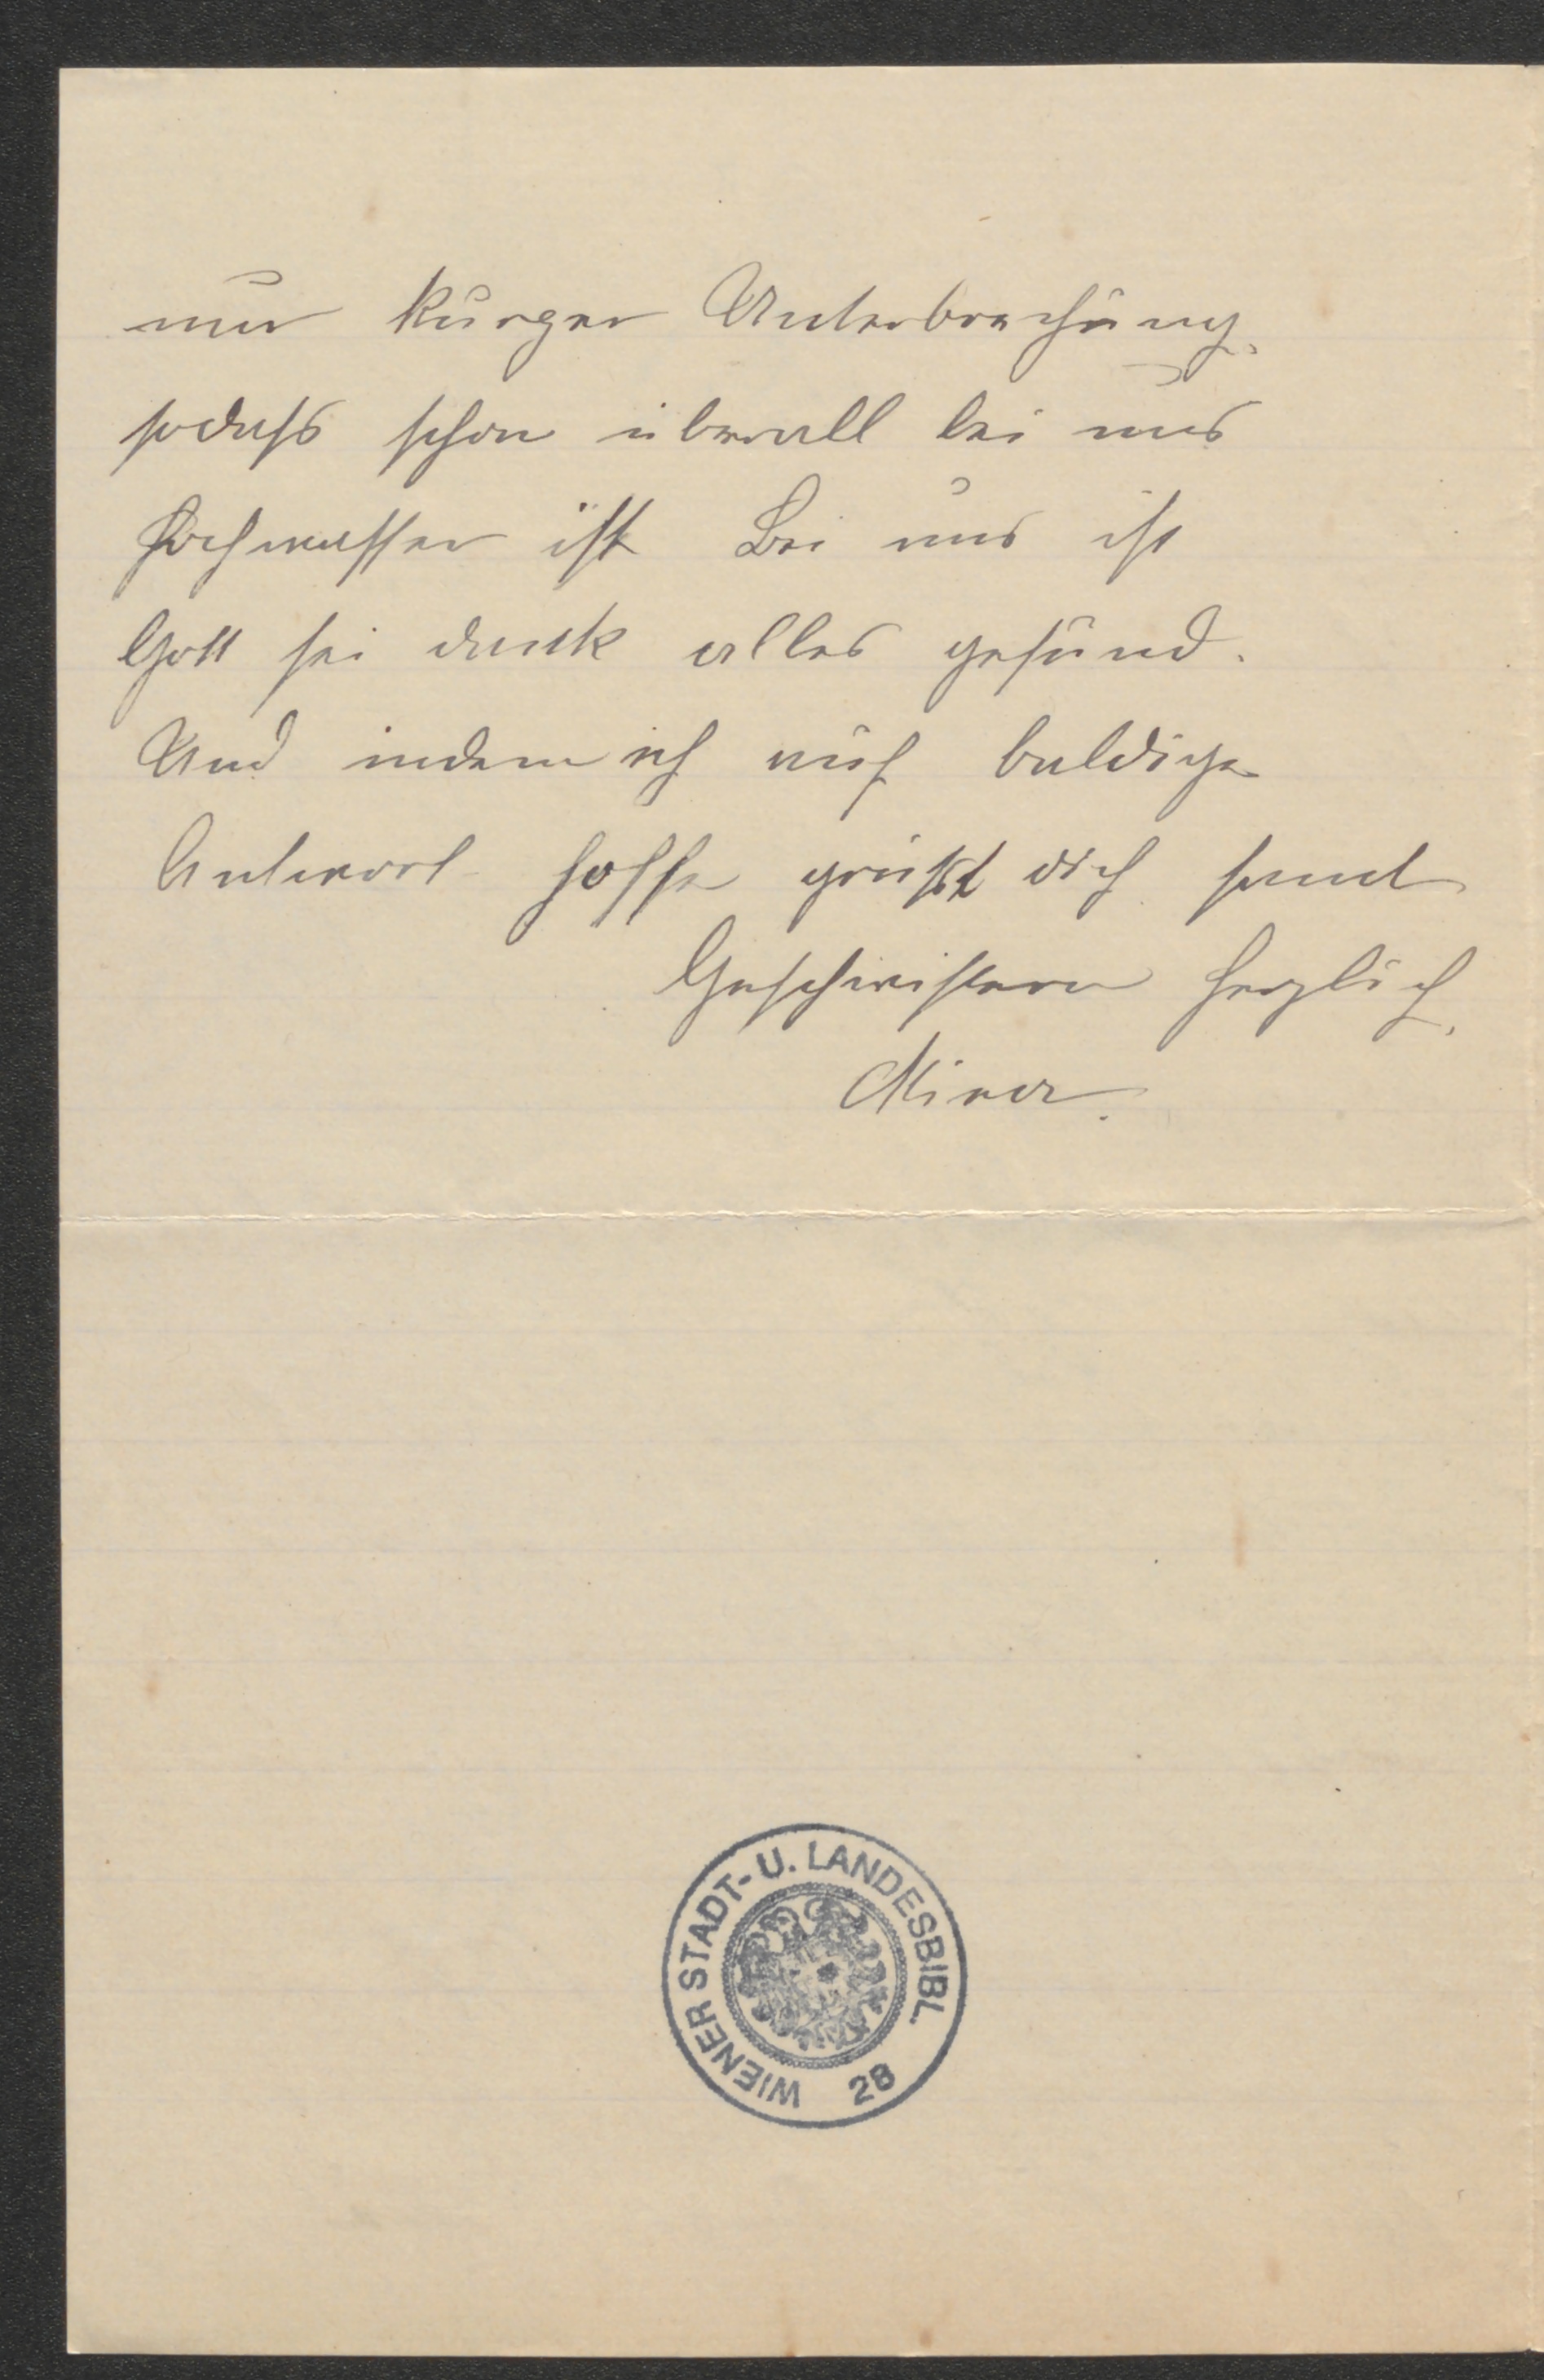 nur kurzer Unterbrechung,
sodaß schon überall bei uns
Hochwasser ist Bei uns ist
Gott sei dank alles gesund.
Und indem ich auf baldige
Antwort hoffe grüßt dich samt
Geschwistern herzlich,
WIENER STADT- U. LANDESBIBL.
28